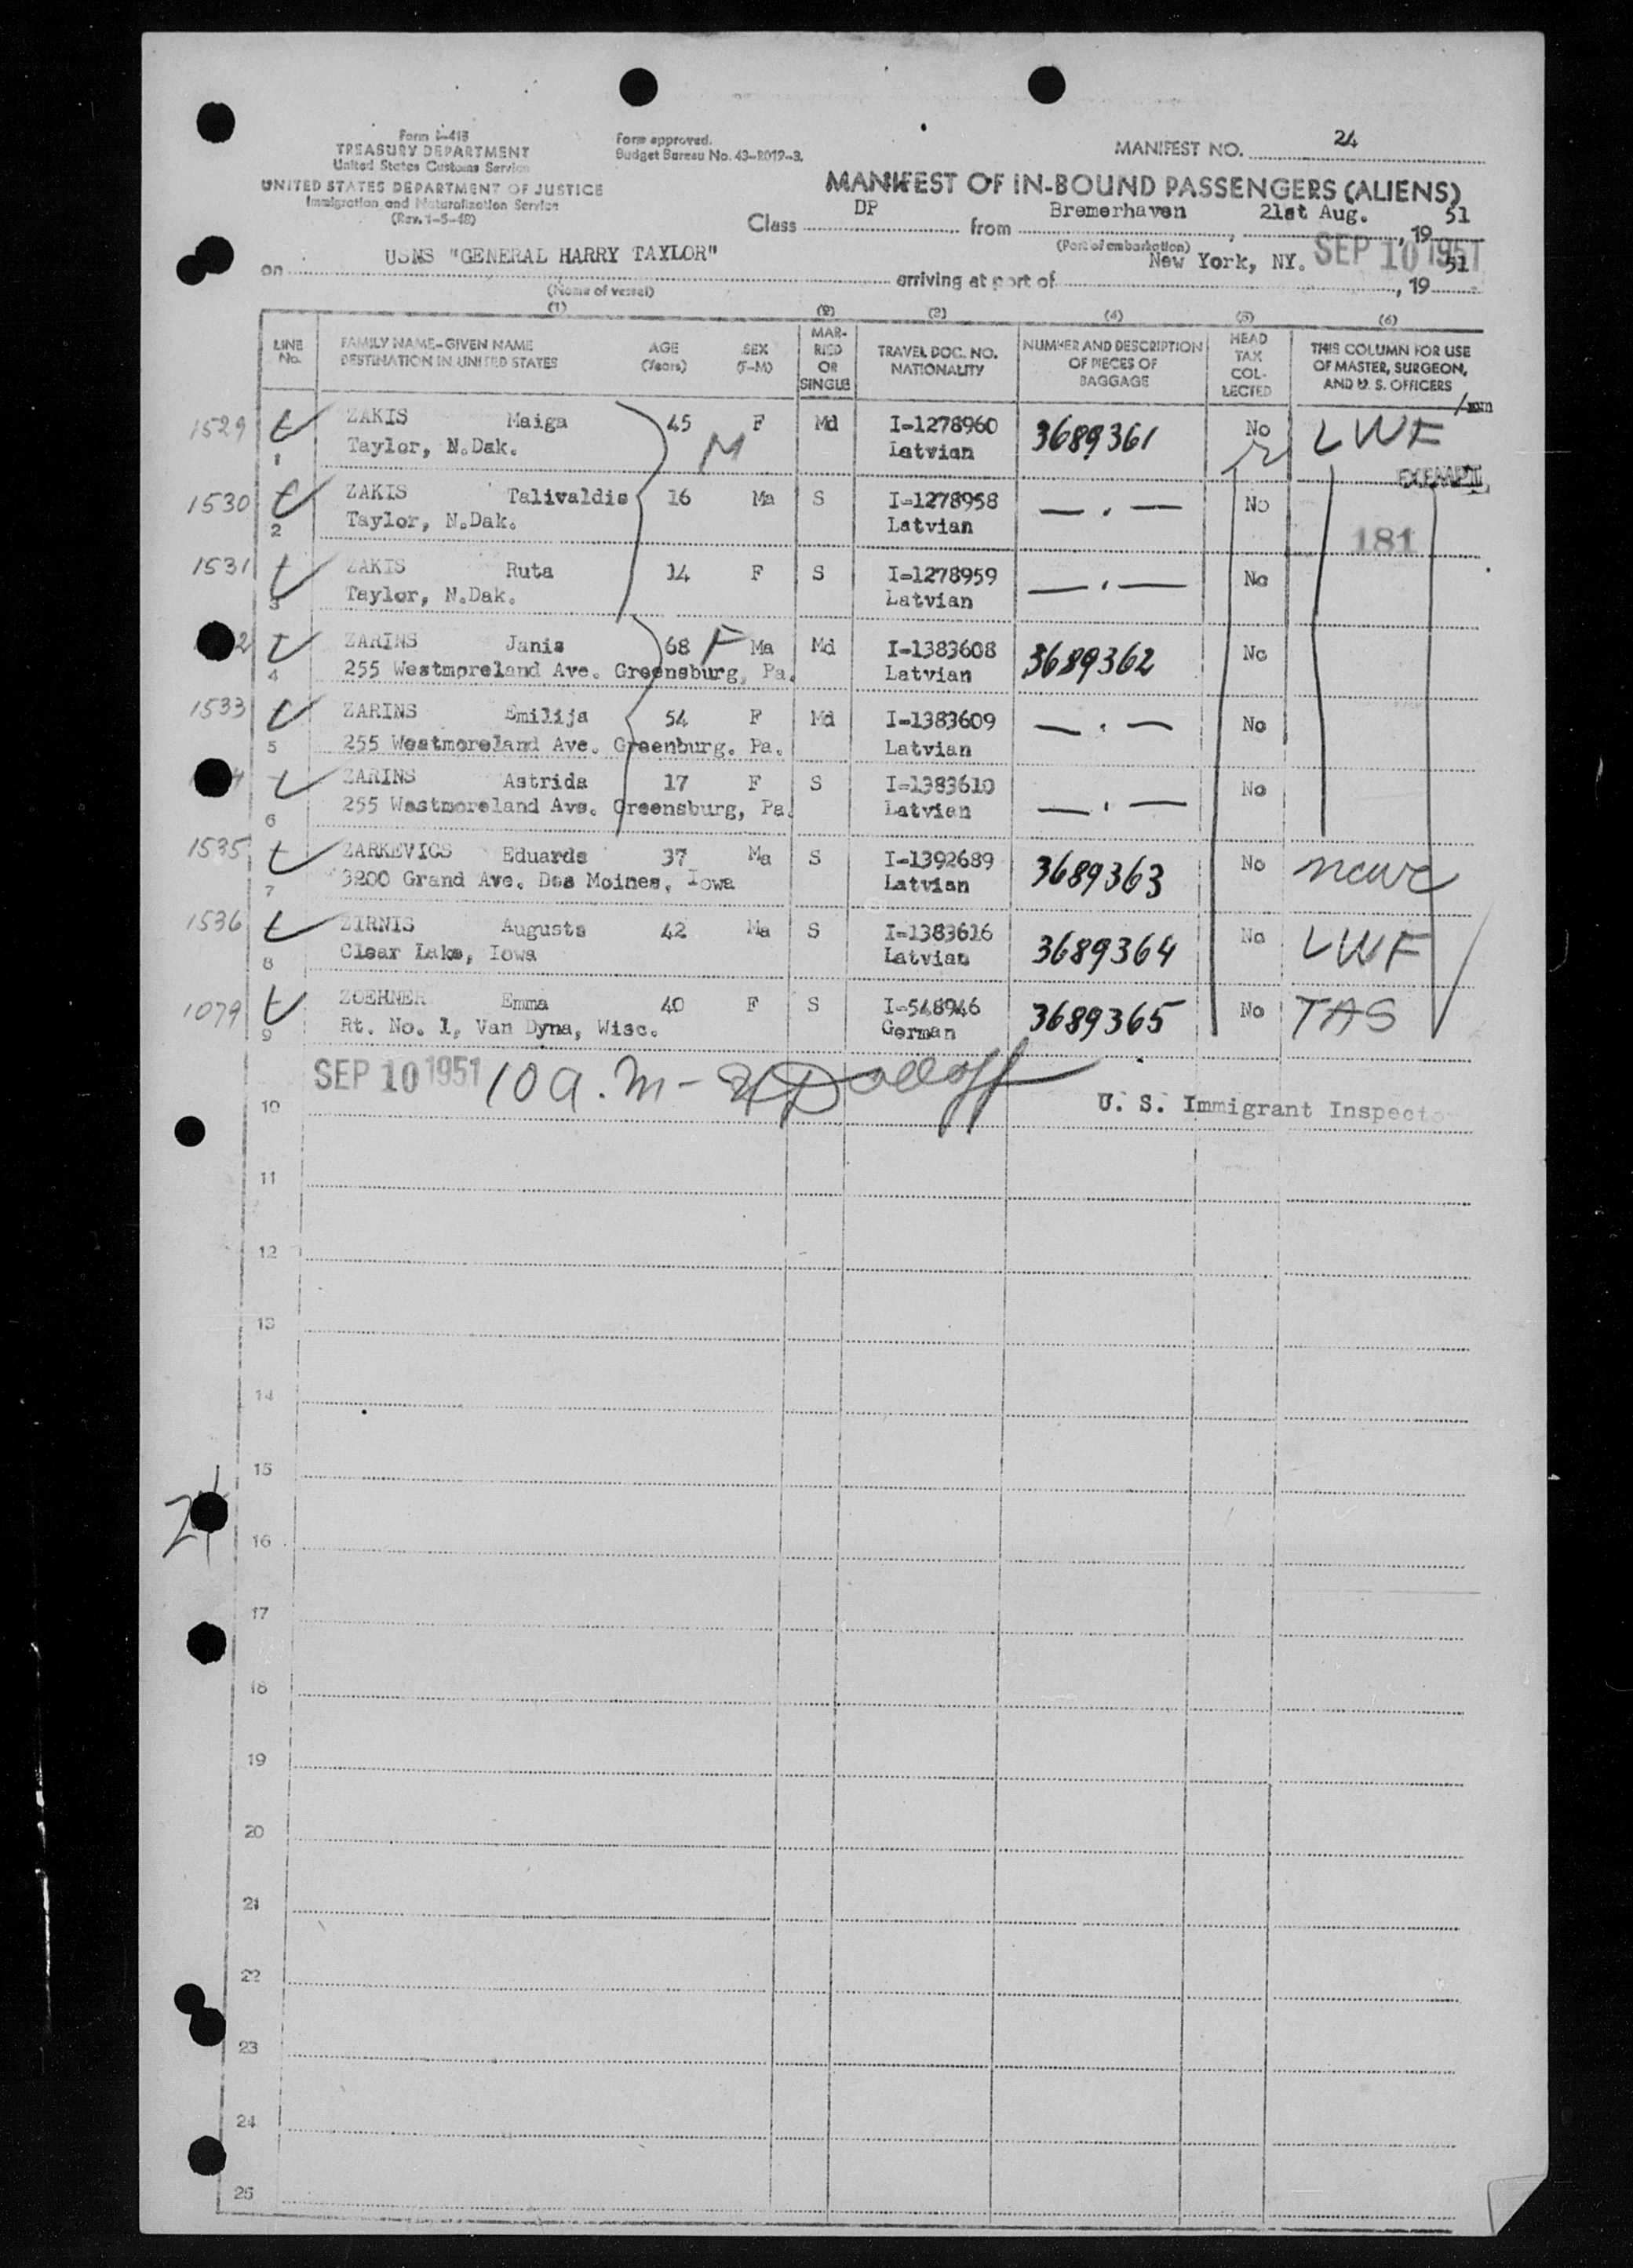 Form I-415
TREASURY DEPARTMENT
United States Customs Service
UNITED STATES DEPARTMENT OF JUSTICE
Immigration and Naturalization Service
(Rev. 1-5-48)
Form approved.
Budget Bureau No. 43-R019-3.
MANIFEST NO. 24
MANIFEST OF IN-BOUND PASSENGERS (ALIENS)
Class DP from Bremerhaven, 21st Aug., 19 51
(Port of embarkation)
on USNS "GENERAL HARRY TAYLOR" arriving at port of New York, NY. SEP 10 1951, 19 51
(Name of vessel)
(1) (2) (3) (4) (5) (6)
LINE No. FAMILY NAME-GIVEN NAME DESTINATION IN UNITED STATES AGE (Years) SEX (F-M) MARRIED OR SINGLE TRAVEL DOC. NO. NATIONALITY NUMBER AND DESCRIPTION OF PIECES OF BAGGAGE HEAD TAX COLLECTED THIS COLUMN FOR USE OF MASTER, SURGEON, AND U. S. OFFICERS
1529 1 ZAKIS Maiga 45 F Md I-1278960 3689361 No LWF
Taylor, N.Dak. M Latvian
EXEMPT
1530 2 ZAKIS Talivaldis 16 Ma S I-1278958 — . — No
Taylor, N.Dak. Latvian 181
1531 3 ZAKIS Ruta 14 F S I-1278959 — . — No
Taylor, N.Dak. Latvian
2 4 ZARINS Janis 68 F Ma Md I-1383608 3689362 No
255 Westmoreland Ave. Greensburg, Pa. Latvian
1533 5 ZARINS Emilija 54 F Md I-1383609 — . — No
255 Westmoreland Ave. Greenburg. Pa. Latvian
4 6 ZARINS Astrida 17 F S I-1383610 — . — No
255 Westmoreland Ave. Greensburg, Pa. Latvian
1535 7 ZARKEVICS Eduards 37 Ma S I-1392689 3689363 No ncwc
3200 Grand Ave. Des Moines, Iowa Latvian
1536 8 ZIRNIS Augusts 42 Ma S I-1383616 3689364 No LWF
Clear Lake, Iowa Latvian
1079 9 ZOEHNER Emma 40 F S I-548946 3689365 No TAS
Rt. No. 1, Van Dyna, Wisc. German
SEP 10 1951 10 a.m-
10 U. S. Immigrant Inspector
11
12
13
14
15
24
16
17
18
19
20
21
22
23
24
25